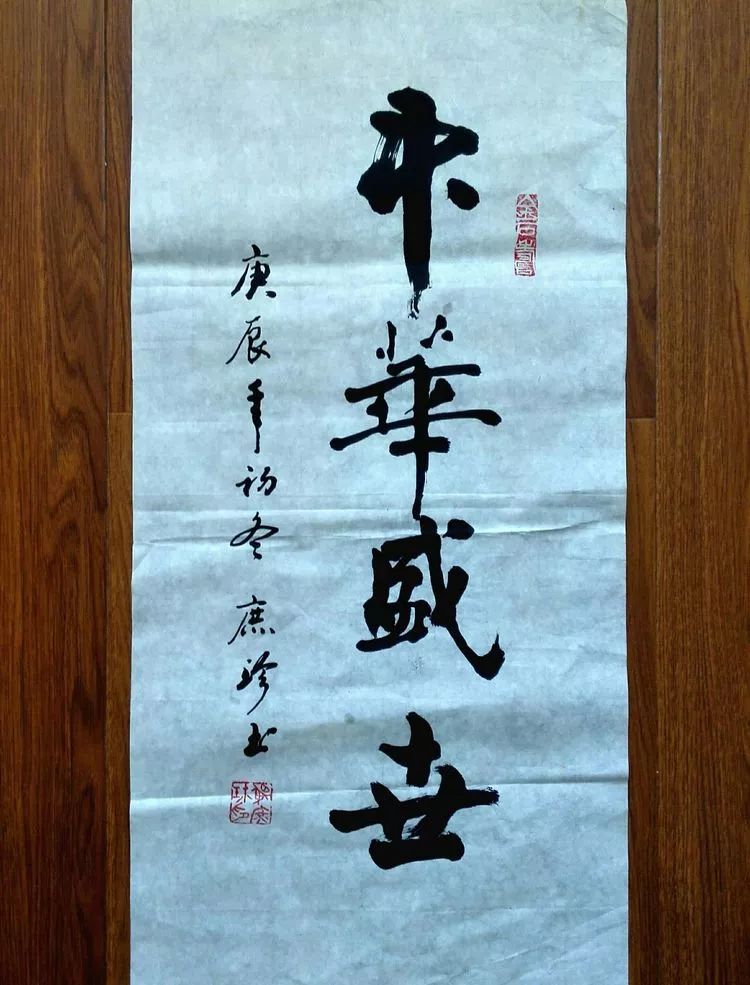 中華盛世
庚辰年初冬 庶珍书